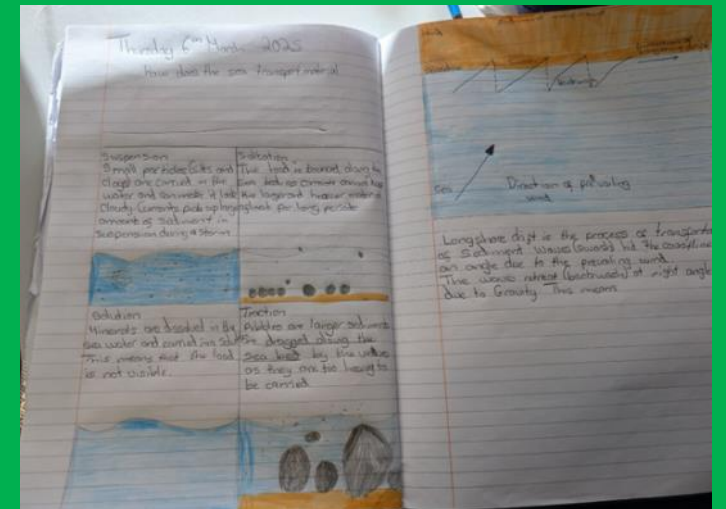 Thursday 6th March 2025
how does the sea transport material
Suspension
Small particles (silts and
clays) are carried in the
water and can make it look
cloudy. Currents pick up large
amounts of sediment in
suspension during a storm
Saltation
The load is bounced along the
sea bed
the larger and heavier material
for long periods
Solution
Minerals are dissolved in the
sea water and carried in a
This means that the load
is not visible.
Traction
Pibbles are larger sediments
are dragged along the
sea bed by the waves
as they are too heavy to
be carried
Sea
Direction of prevailing
wind
Longshore drift is the process of
of sediment Waves (swash) hit the coastline
an angle due to the prevailing wind.
The waves retreat (backwash) at right angle
due to Gravity This means